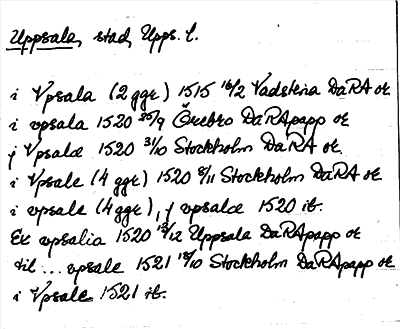 Uppsala, stad, Upps. l.
i Vpsala (2 ggr) 1515 16/2 Vadstena DaRA or
i vpsala 1520 30/9 Örebro DaRApapp or
j Vpsale 1520 31/10 Stockholm DaRA or
i Vpsale (4 ggr) 1520 8/11 Stockholm DaRA or
i vpsale (4 ggr), j vpsale 1520 ib.
Ex vpsalia 1520 13/12 Uppsala DaRApapp or
til ... vpsale 1521 18/10 Stockholm DaRApapp or
i Vpsale 1521 ib.